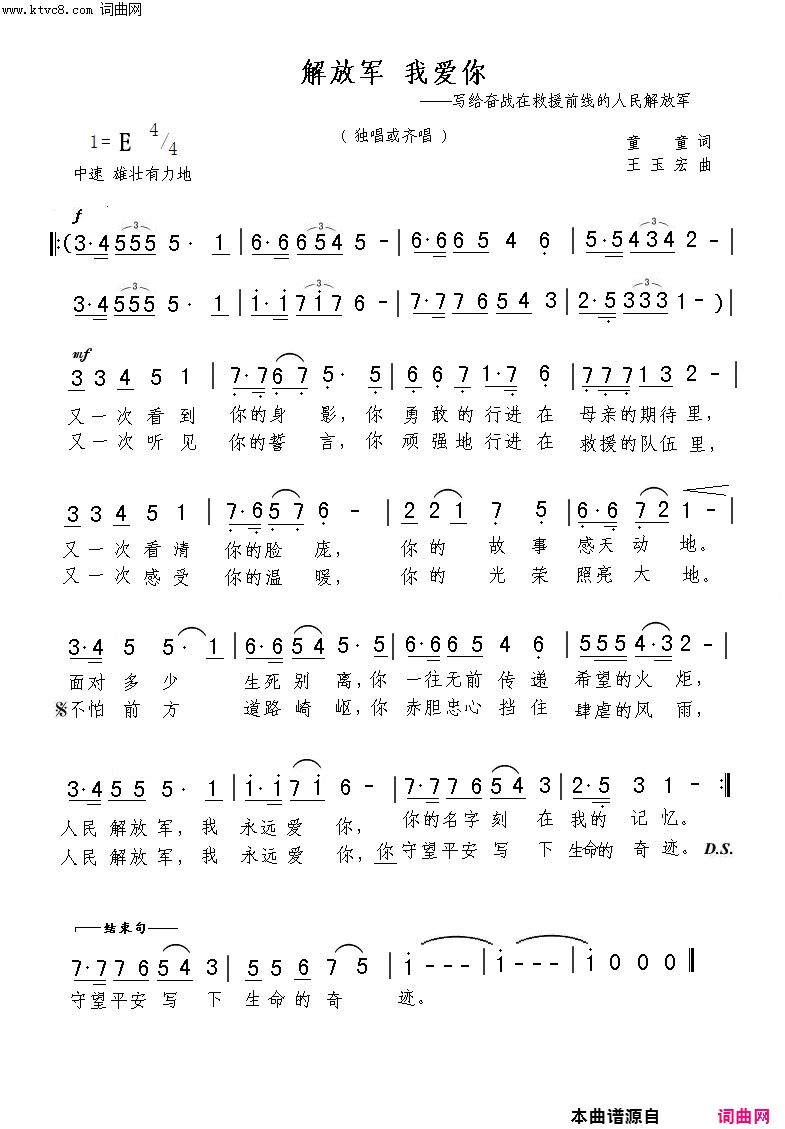 www.ktvc8.com 词曲网
解放军 我爱你
——写给奋战在救援前线的人民解放军
(独唱或齐唱)
1= E 4/4
童 童 词
中速 雄壮有力地
王 玉 宏 曲
f
(3·4 555 5· 1 | 6·6 654 5 - | 6·6 6 5 4 6 | 5·5 434 2 - |
3·4 555 5· 1 | 1·1 717 6 - | 7·7 7 6 5 4 3 | 2·5 333 1 - )
mf
3 3 4 5 1 | 7·7 6 7 5· 5 | 6 6 7 1·7 6 | 7 7 7 1 3 2 |
又一次看到 你的身 影，你 勇敢的行进在 母亲的期待里，
又一次听见 你的誓 言，你 顽强地行进在 救援的队伍里，
3 3 4 5 1 | 7·6 5 7 6 - | 2 2 1 7 5 | 6·6 7 2 1 - |
又一次看清 你的脸 庞， 你的 故 事 感天 动 地。
又一次感受 你的温 暖， 你的 光 荣 照亮 大 地。
3·4 5 5· 1 | 6·6 5 4 5· 5 | 6·6 6 5 4 6 | 5 5 5 4·3 2 - |
面对 多 少 生死 别 离，你 一往无前 传 递 希望的火 炬，
不怕 前 方 道路 崎 岖，你 赤胆忠心 挡 住 肆虐的风 雨，
3·4 5 5 5· 1 | 1·1 7 1 6 - | 7·7 7 6 5 4 3 | 2·5 3 1 - :‖
人民 解放军，我 永远 爱 你， 你的名字 刻 在 我的 记 忆。
人民 解放军，我 永远 爱 你，你 守望平安 写 下 生命的 奇 迹。 D.S.
结束句
7·7 7 6 5 4 3 | 5 5 6 7 5 | 1 - - - | 1 - - - | 1 0 0 0 ‖
守望平安 写 下 生命的奇 迹。
本曲谱源自 词曲网